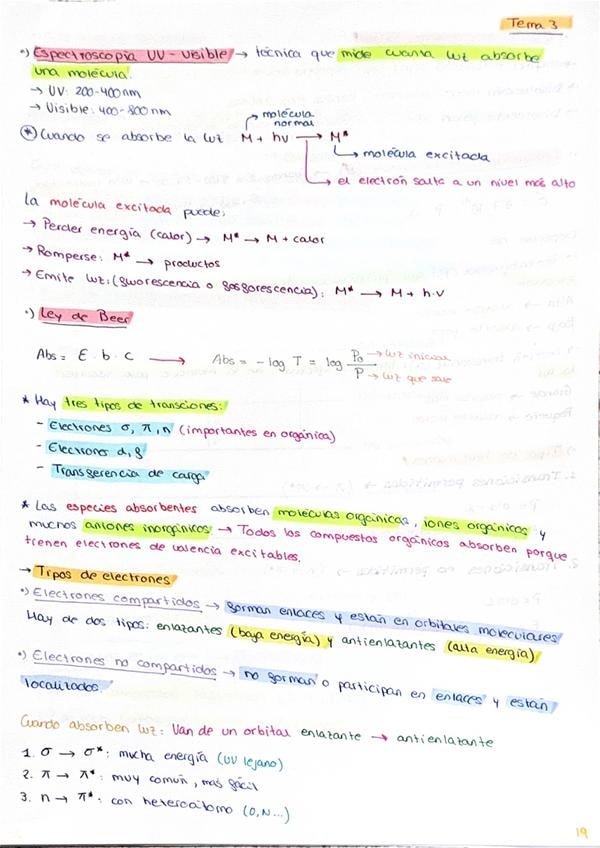 Tema 3
•) Espectroscopía UV-visible → técnica que mide cuanta luz absorbe
una molécula.
→ UV: 200-400nm
→ Visible: 400-800nm
→ molécula
normal
* Cuando se absorbe la luz M + hv → M*
→ molécula excitada
→ el electrón salta a un nivel más alto
La molécula excitada puede:
→ Perder energía (calor) → M* → M + calor
→ Romperse: M* → productos
→ Emite luz: (fluorescencia o fosforescencia): M* → M + h·v
•) Ley de Beer
Abs = E · b · c → Abs = - log T = log P₀/P → luz inicial
→ luz que sale
* Hay tres tipos de transciones:
- Electrones σ, π, n (importantes en orgánica)
- Electrones d, f
- Transferencia de carga
* Las especies absorbentes absorben moléculas orgánicas, iones orgánicos y
muchos aniones inorgánicos → Todos los compuestos orgánicos absorben porque
tienen electrones de valencia excitables.
→ Tipos de electrones
•) Electrones compartidos → forman enlaces y están en orbitales moleculares
Hay de dos tipos: enlazantes (baja energía) y antienlazantes (alta energía)
•) Electrones no compartidos → no forman o participan en enlaces y están
localizados.
Cuando absorben luz: Van de un orbital enlazante → antienlazante
1. σ → σ*: mucha energía (UV lejano)
2. π → π*: muy común, más fácil
3. n → π*: con heteroátomo (O, N...)
19